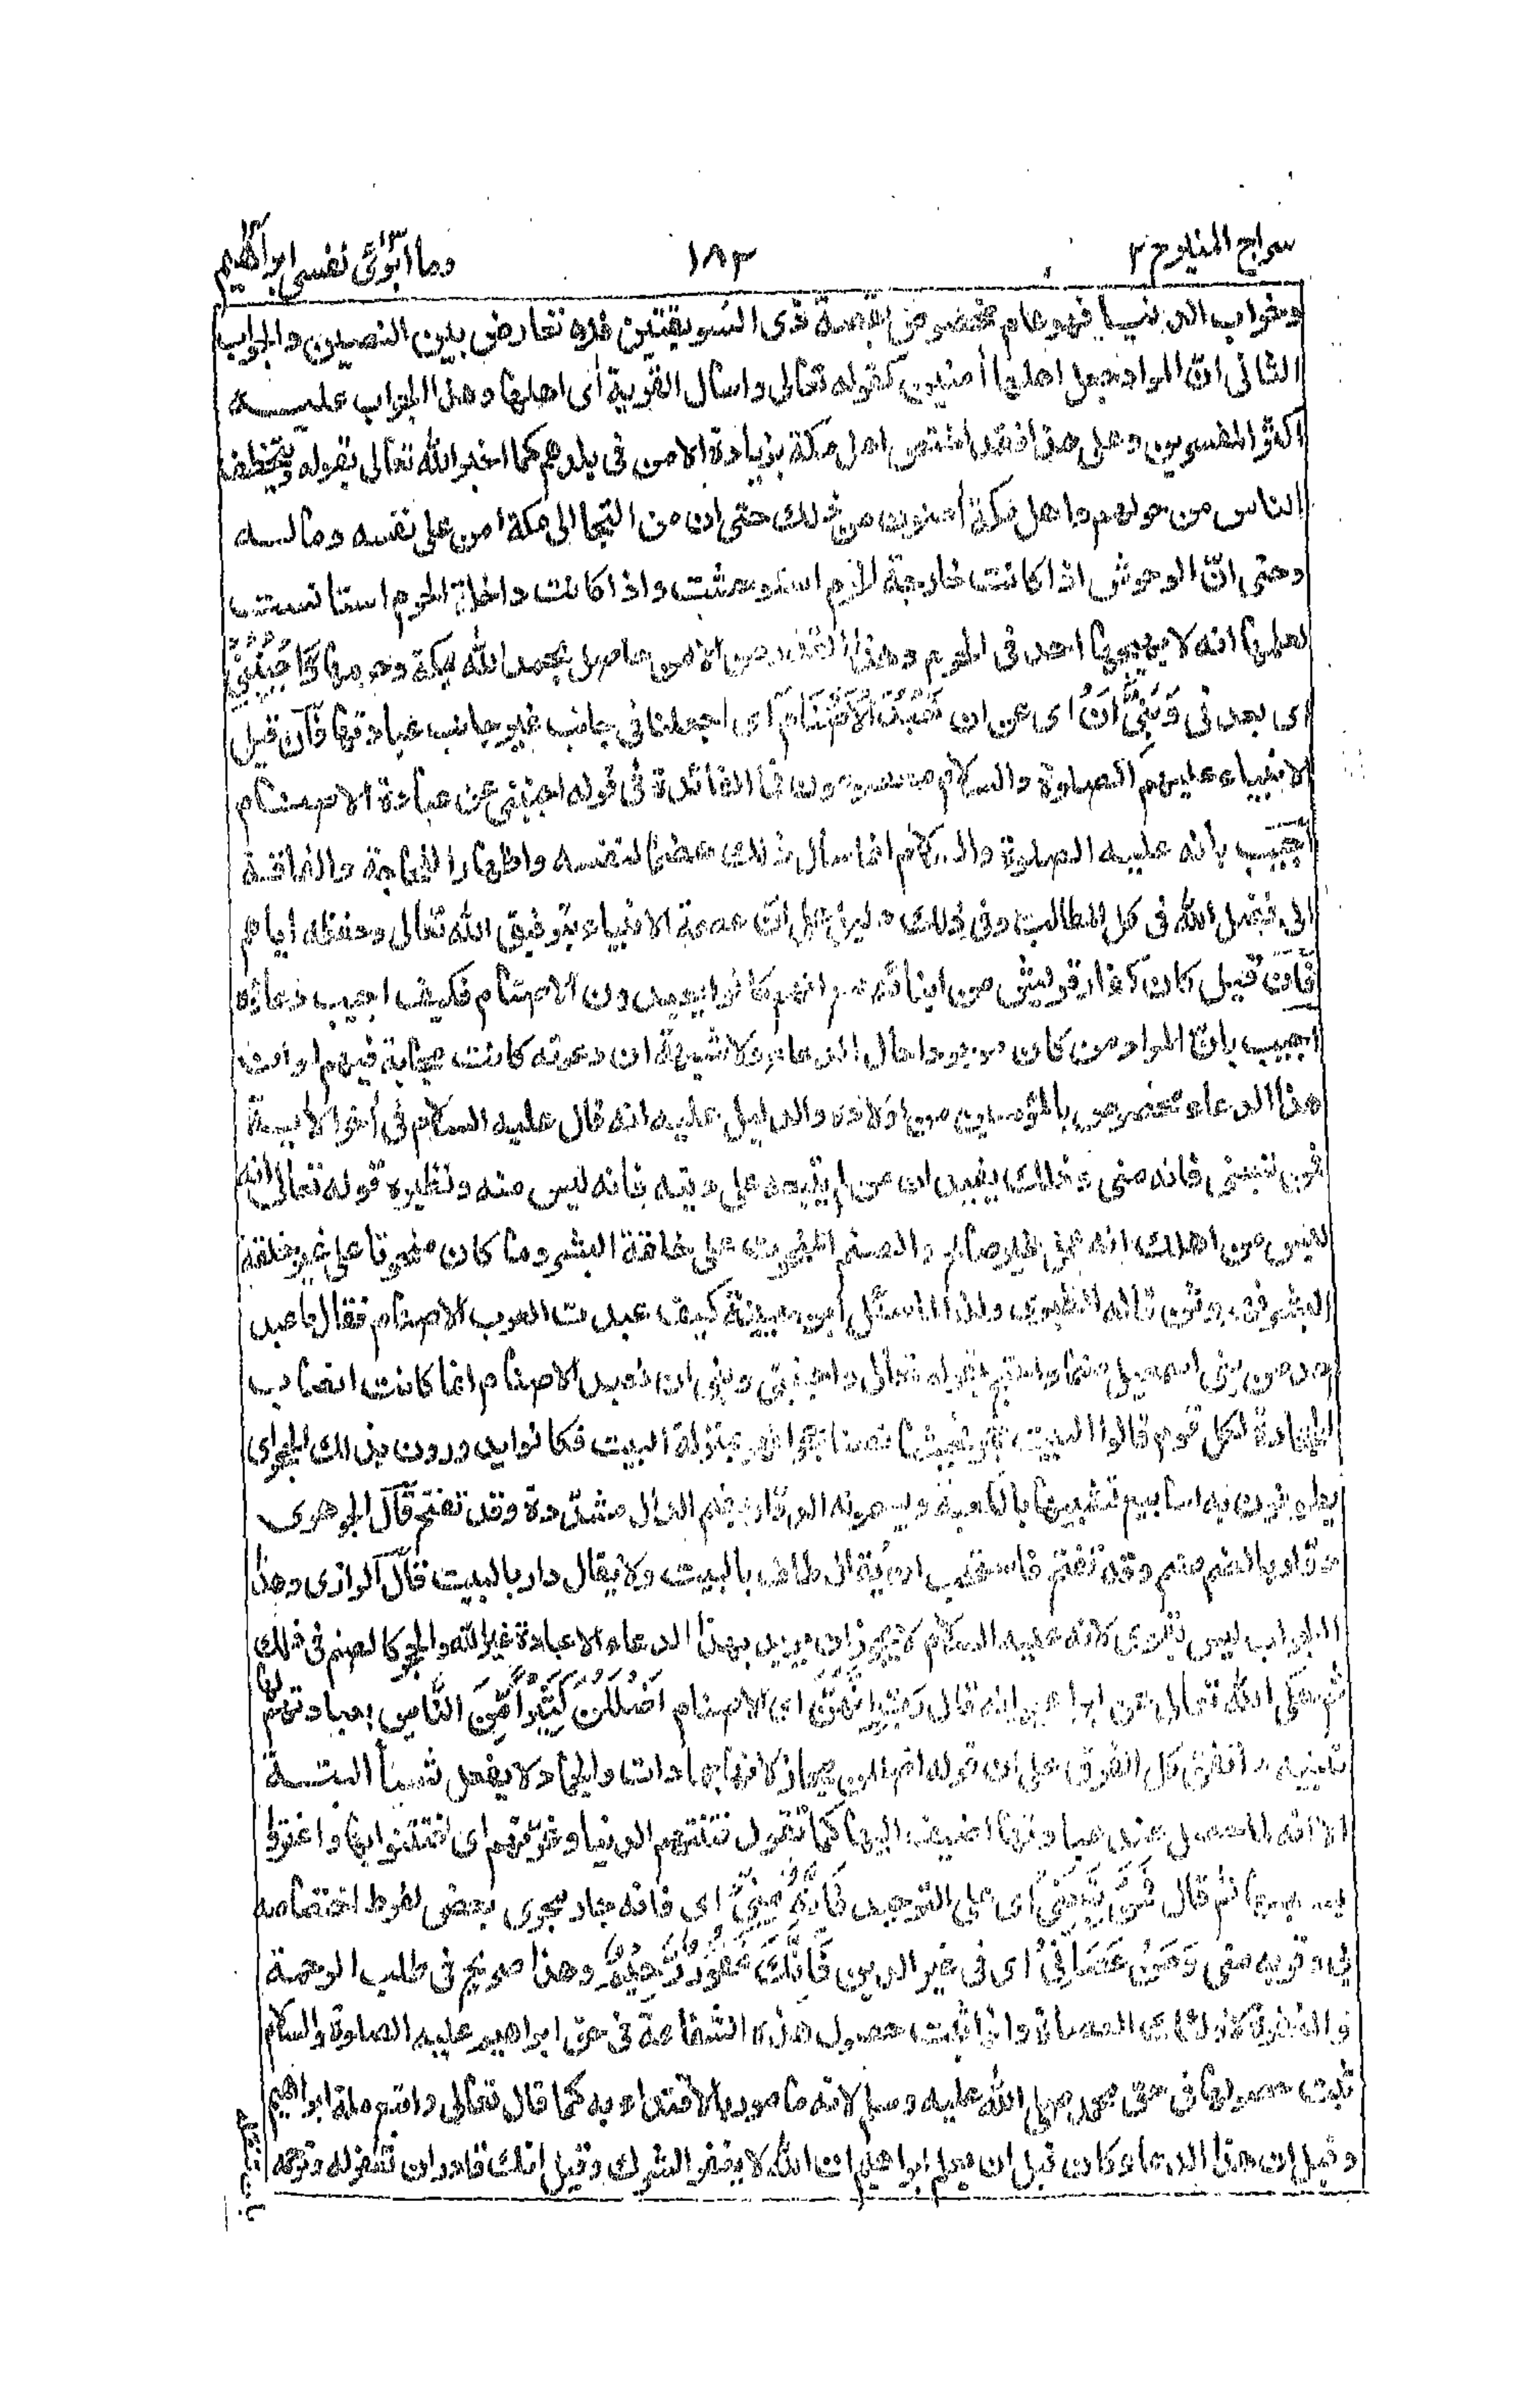 سراج المنير ج ٢ ١٨٣ وما أبرئ نفسى ابراهيم
وخراب الدنيا فهو عام مخصوص بقصة ذى السويقتين فلا تعارض بين النصين والجواب
الثانى انّ المراد جعل اهلها أمنين كقوله تعالى واسأل القرية أى اهلها وهذا الجواب عليه
اكثر المفسرين وعلى هذا فقد اختص اهل مكة بزيادة الامن فى بلدهم كما اخبر الله تعالى بقوله ويتخطف
الناس من حولهم واهل مكة أمنون من ذلك حتى ان من التجا الى مكة امن على نفسه وماله
وحتى انّ الوحوش اذا كانت خارجة الحرم استوحشت واذا كانت داخلة الحرم استانست
لعلمها انه لا يهيجها احد فى الحرم وهذا القدر من الامن حاصل بحمد الله بمكة وحرمها وَّاجْنُبْنِىْ
اى بعدنى وَبَنِىَّ اَنْ اى عن ان نَّعْبُدَ الْاَصْنَامَ اى اجعلنا فى جانب غير جانب عبادتها فان قيل
الانبياء عليهم الصلوة والسلام معصومون فما الفائدة فى قوله اجنبنى عن عبادة الاصنام
اجيب بانه عليه الصلوة والسلام انما سأل ذلك هضما لنفسه واظهارا للحاجة والفاقة
الى فضل الله فى كل المطالب وفى ذلك دليل على انّ عصمة الانبياء بتوفيق الله تعالى وحفظه اياهم
فان قيل كان كفار قريش من ابنائه مع انهم كانوا يعبدون الاصنام فكيف اجيب دعاؤه
اجيب بانّ المراد من كان موجودا حال الدعاء ولا شبهة ان دعوته كانت مجابة فيهم او ان
هذا الدعاء مخصوص بالمؤمنين من اولاده والدليل عليه انه قال عليه السلام فى أخر الأية
فمن تبعنى فانه منى وذلك يفيد ان من لم يتبعه على دينه فانه ليس منه ونظيره قوله تعالى انه
ليس من اهلك انه عمل غير صالح والصنم المنحوت على خلقة البشر وما كان منحوتا على غير خلقة
البشر فهو وثن قاله الطبرى ولذا لما سئل ابن عيينة كيف عبدت العرب الاصنام فقال ما عبد
احد من بنى اسمعيل صنما واحتج بقوله تعالى واجنبنى وبنى ان نعبد الاصنام انما كانت انصاب
الحجارة لكل قوم قالوا البيت حجر فحيثما نصبنا حجرا فهو بمنزلة البيت فكانوا يدورون بذلك الحجر اى
يطوفون به اسابيع تشبيها بالكعبة ويسمونه الدوّار بضم الدال مشدّدة وقد تفتح قال الجوهرى
دوّار بالضم صنم وقد تفتح فاستحب ان يقال طاف بالبيت ولا يقال دار بالبيت قال الرازى وهذا
الجواب ليس بقوى لانه عليه السلام لا يجوز ان يريد بهذا الدعاء الا عبادة غير الله والحجر كالصنم فى ذلك
ثم حكى الله تعالى عن ابراهيم انه قال رَبِّ اِنَّهُنَّ اى الاصنام اَضْلَلْنَ كَثِيْرًا مِّنَ النَّاسِ بعبادتهم لها
تنبيه اتفق كل الفرق على ان قوله اضللن مجاز لانها جمادات والجماد لا يفعل شيأ البتة
الا انه لما حصل عند عبادتها اضيف اليها كما تقول فتنتهم الدنيا وغرّتهم اى افتتنوا بها واغتروا
بسببها ثم قال فَمَنْ تَبِعَنِىْ اى على التوحيد فَاِنَّهٗ مِنِّىْ اى فانه جار مجرى بعضى لفرط اختصاصه
بى وقربه منى وَمَنْ عَصَانِىْ اى فى غير الدين فَاِنَّكَ غَفُوْرٌ رَّحِيْمٌ وهذا صريح فى طلب الرحمة
والمغفرة لاولئك العصاة واذا ثبت حصول هذه الشفاعة فى حق ابراهيم عليه الصلوة والسلام
ثبت حصولها فى حق محمد صلى الله عليه وسلم لانه مامور بالاقتداء به كما قال تعالى واتبع ملة ابراهيم
وقيل ان هذا الدعاء كان قبل ان يعلم ابراهيم ان الله لا يغفر الشرك وقيل انك قادر ان تغفر له وترحمه